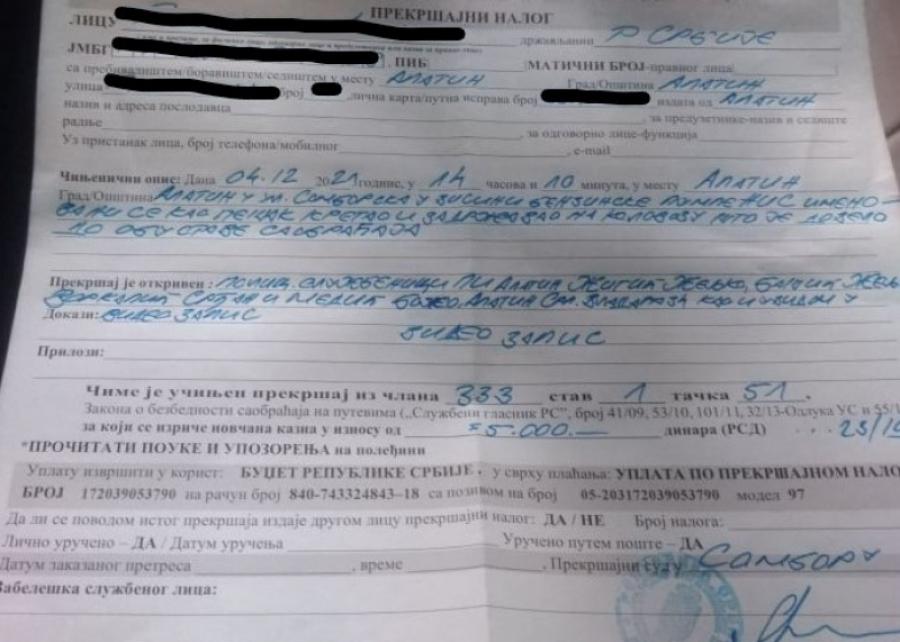 ПРЕКРШАЈНИ НАЛОГ
ЛИЦУ држављанин Р СРБИЈЕ
ЈМБГ , ПИБ МАТИЧНИ БРОЈ-правног лица
са пребивалиштем/боравиштем/седиштем у месту АПАТИН Град/Општина АПАТИН
улица број , лична карта/путна исправа број издата од АПАТИН
назив и адреса послодавца , за предузетнике-назив и седиште
радње , за одговорно лице-функција
Уз пристанак лица, број телефона/мобилног , e-mail
Чињенични опис: Дана 04.12 2021 године, у 14 часова и 10 минута, у месту АПАТИН
Град/Општина АПАТИН У УЛ. СОМБОРСКА У ВИСИНИ БЕНЗИНСКЕ ПУМПЕ НИС ИМЕНО-
ВАНИ СЕ КАО ПЕШАК КРЕТАО И ЗАДРЖАВАО НА КОЛОВОЗУ ШТО ЈЕ ДОВЕЛО
ДО ОБУСТАВЕ САОБРАЋАЈА
Прекршај је откривен : ПОЛИЦ. СЛУЖБЕНИЦИ ПИ АПАТИН
СРЂАН И БОЖО, АПАТИН
Докази: ВИДЕО ЗАПИС
ВИДЕО ЗАПИС
Прилози:
Чиме је учињен прекршај из члана 333 став 1 тачка 51.
Закона о безбедности саобраћаја на путевима („Службени гласник РС”, број 41/09, 53/10, 101/11, 32/13-Одлука УС и 55/1
за који се изриче новчана казна у износу од =5.000.— динара (РСД) ... 23/19
*ПРОЧИТАТИ ПОУКЕ И УПОЗОРЕЊА на полеђини
Уплату извршити у корист: БУЏЕТ РЕПУБЛИКЕ СРБИЈЕ, у сврху плаћања: УПЛАТА ПО ПРЕКРШАЈНОМ НАЛО
БРОЈ 172039053790 на рачун број 840-743324843-18 са позивом на број 05-203172039053790 модел 97
Да ли се поводом истог прекршаја издаје другом лицу прекршајни налог: ДА / НЕ Број налога:
Лично уручено – ДА / Датум уручења Уручено путем поште – ДА
Датум заказаног претреса , време , Прекршајни суд у СОМБОРУ
Забелешка службеног лица: